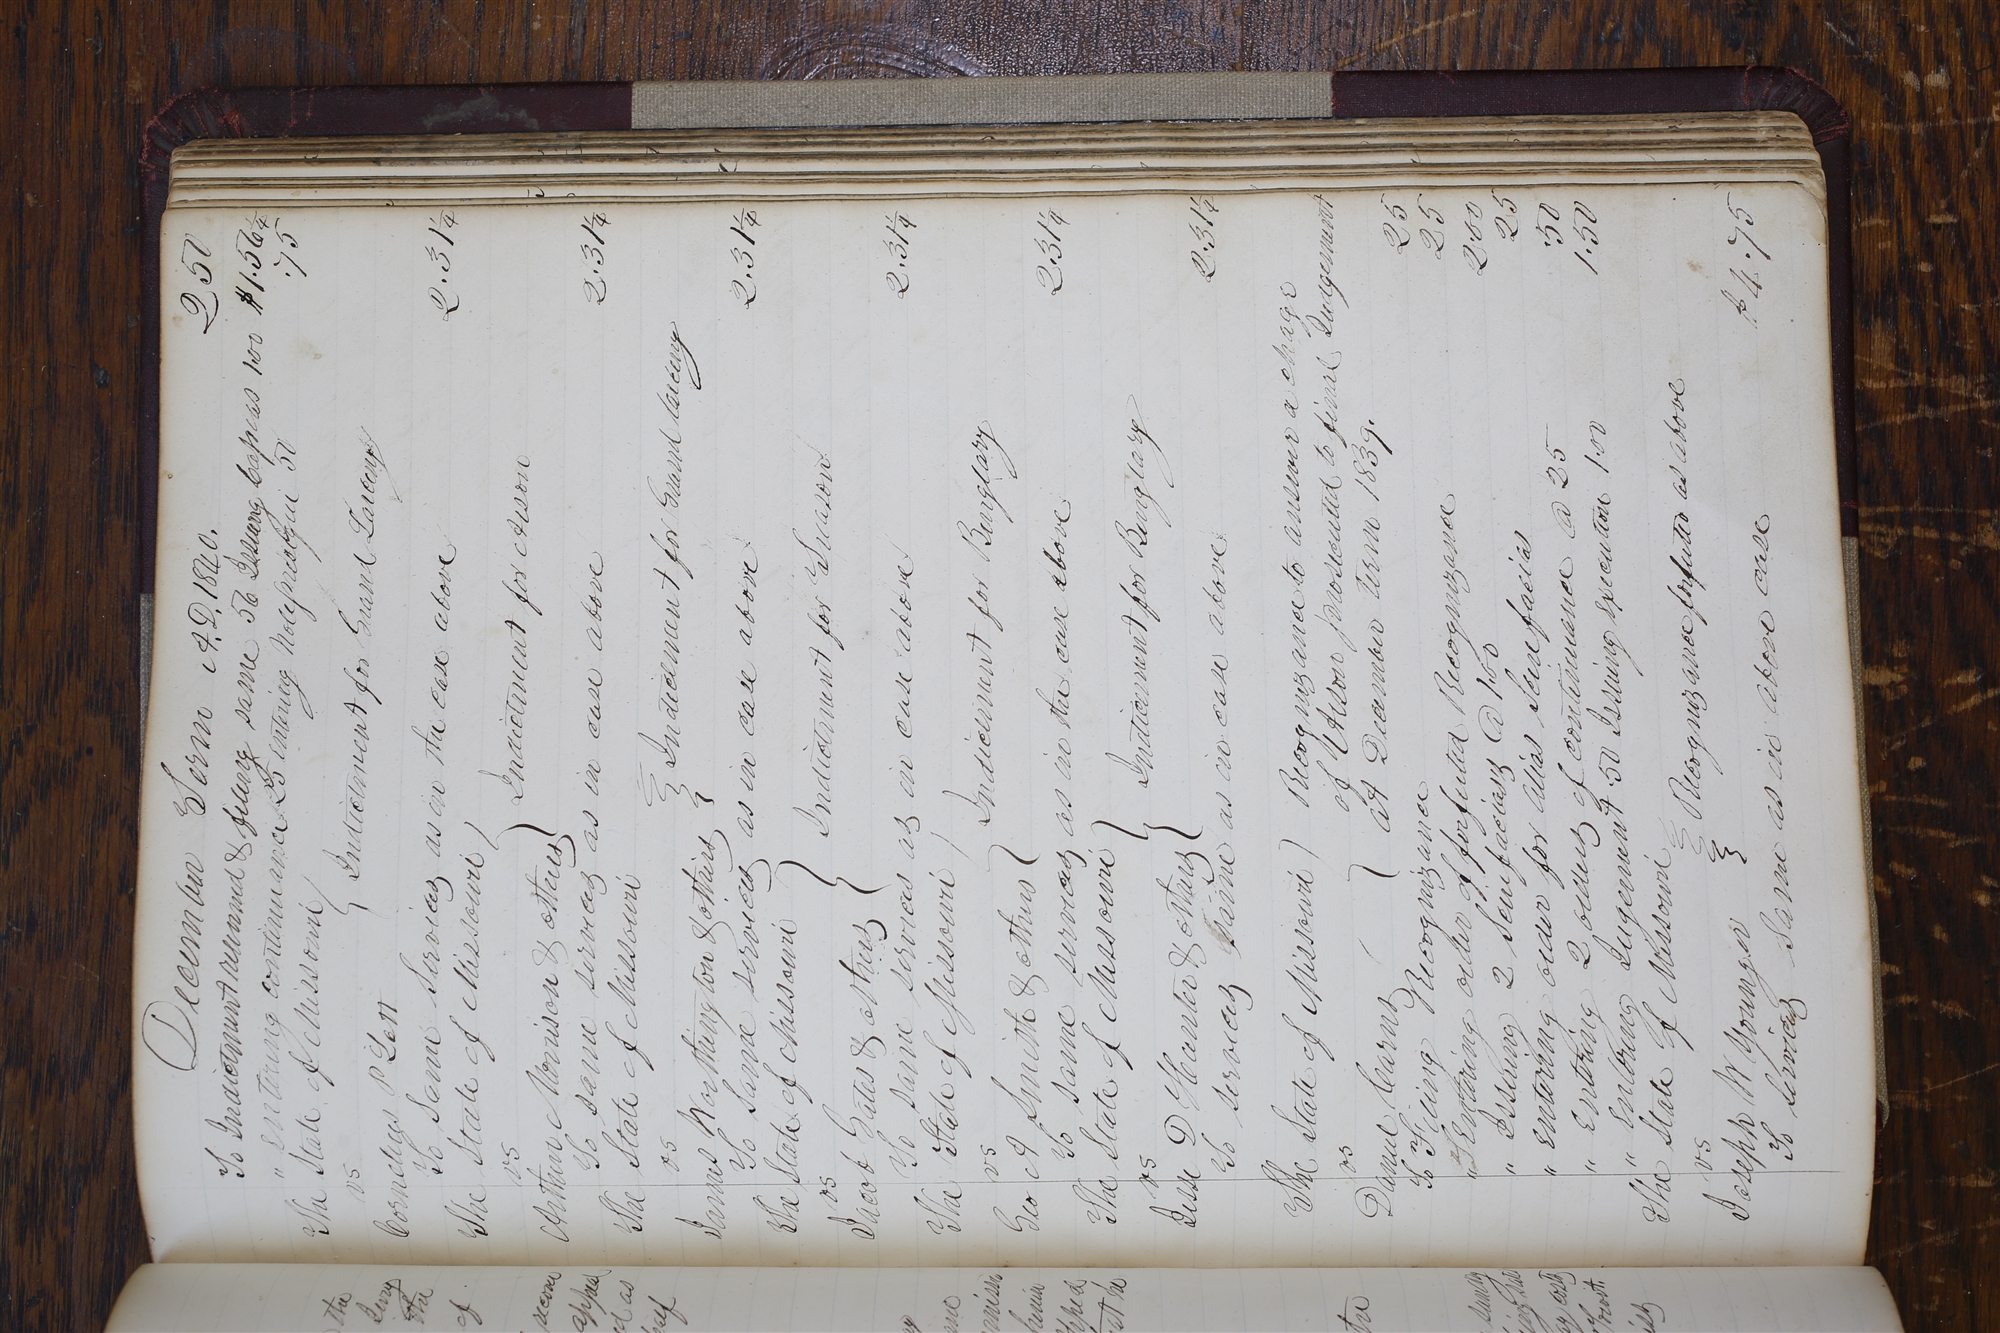 December Term A.D. 1840. 250
To Indictment, rearraind & filing same 56 Issuing Copias 1.00 $1.56¼
" Entering continuance 25 entering Nolepridgui 50 .75
The State of Missouri
vs } Indictment for Grand Larceny
Cornelius P Lott
To Same Services as in the case above 2.31¼
The State of Missouri
vs } Indictment for Arson
Arthur Morrison & others
To same services as in case above 2.31¼
The State of Missouri
vs } Indicement for Grand Larceny
James Worthington & others
To Same services as in case above 2.31¼
The State of Missouri
vs } Indictment for Treason
Jacob Gates & others
To same services as in case above 2.31¼
The State of Missouri
vs } Indicement for Burglary
Geo A Smith & others
To same services as in the case above 2.31¼
The State of Missouri
vs } Indicement for Burglary
Jesse D Hunter & others
To services Same as in case above 2.31¼
The State of Missouri } Recognizance to answer a charge
vs of Arson prosecuted to final Judgement
Daniel Cearns at December term 1839.
To Filing Recognizance 25
" Entering order of forfeited Recognizance 25
" Issuing 2 Scirefacias @ 1.00 2.00
" entering order for alias Scirefacias 25
" Entering 2 orders of continuance @ 25 .50
" Entering Judgement .50 Issuing execution 1.00 1.50
The State of Missouri
vs } Recognizance forfeited as above
Joseph W Younger
To Services Same as in above case $4.75
the
of
appeal
ed as
the